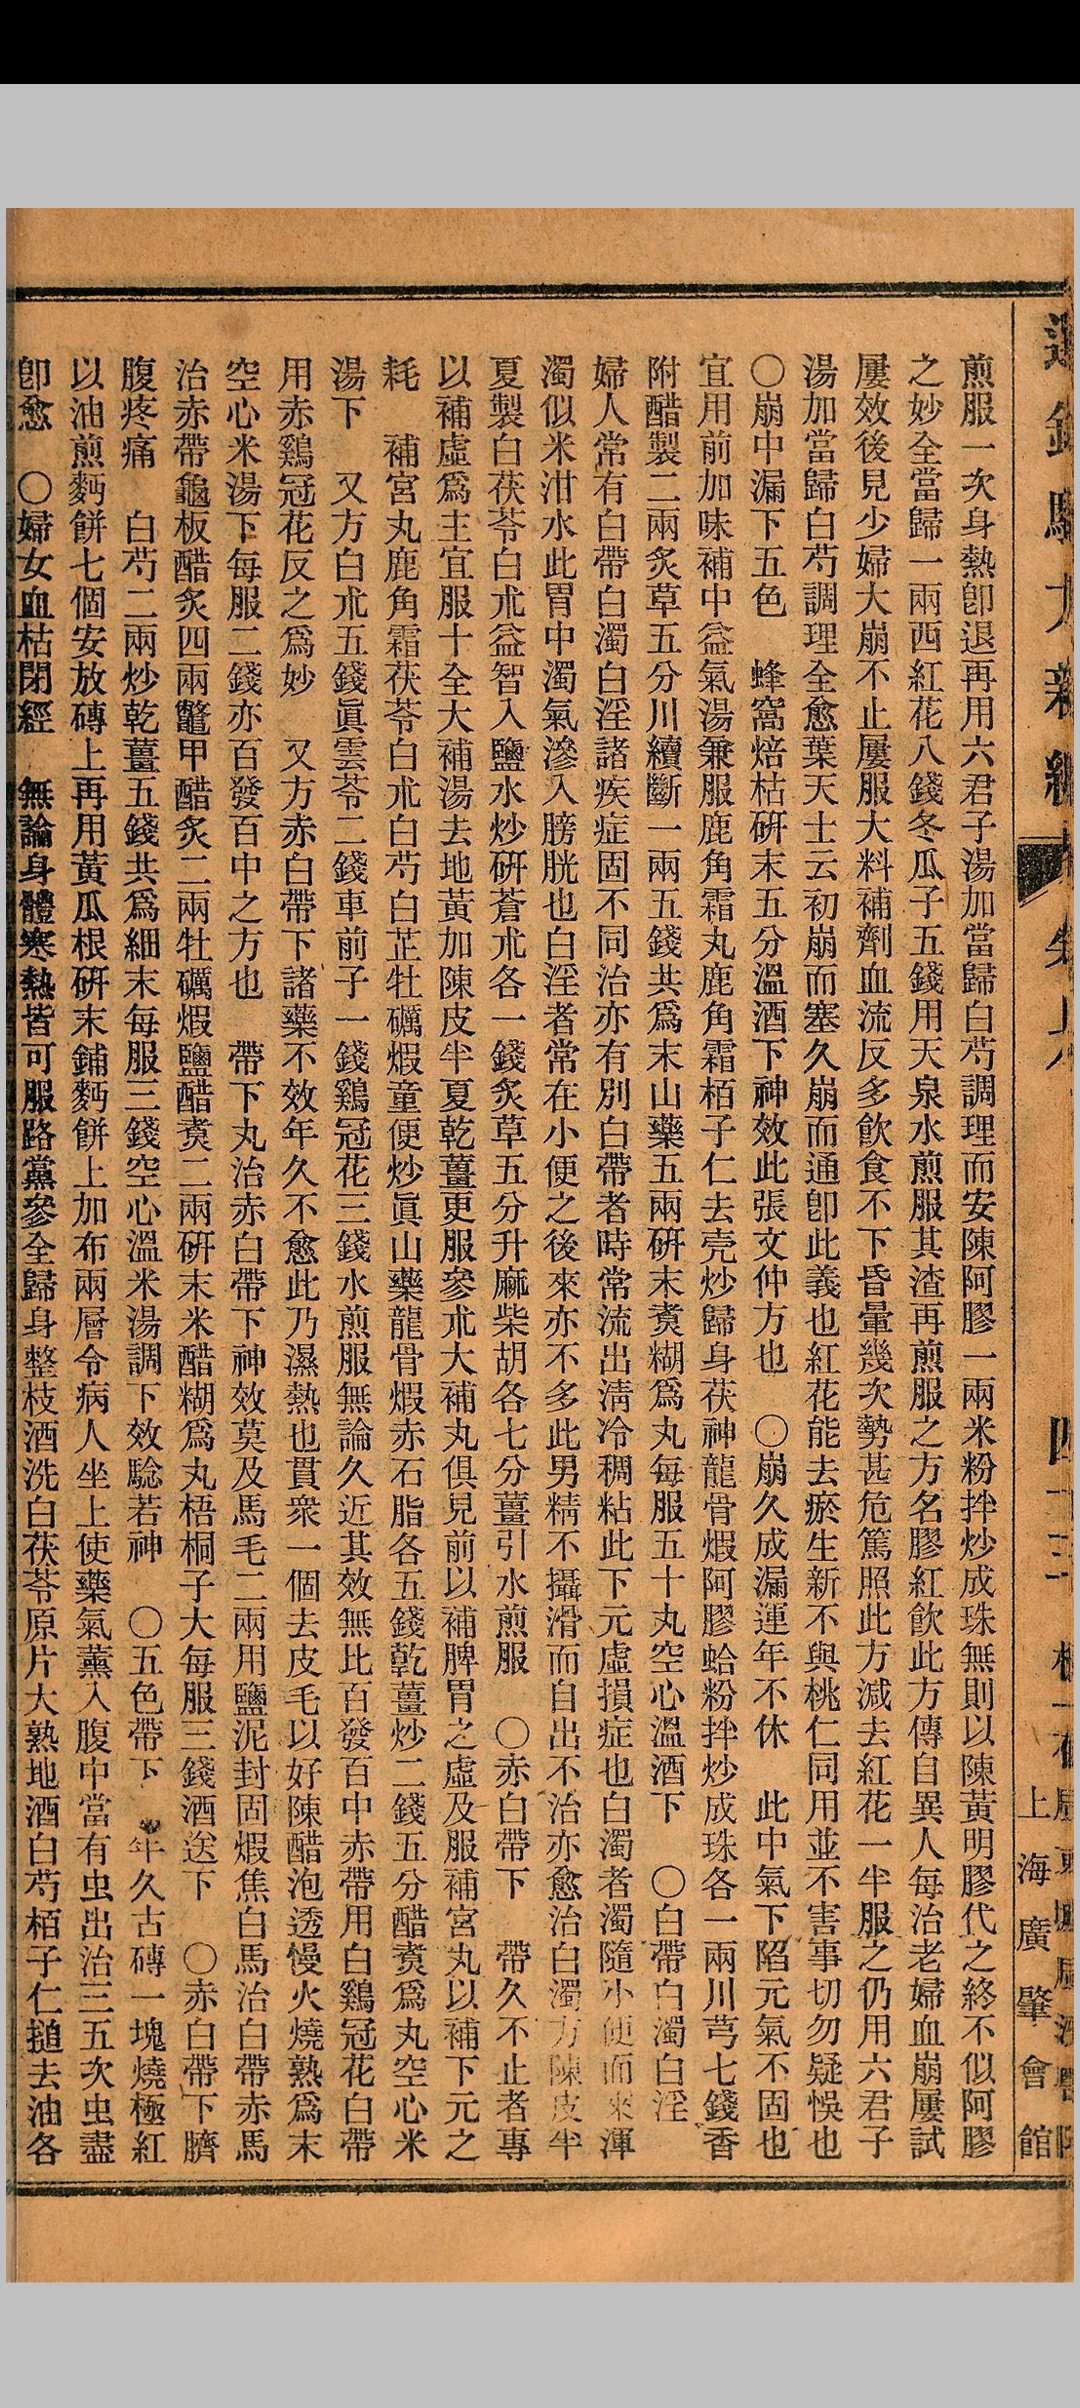 煎服一次身熱卽退再用六君子湯加當歸白芍調理而安陳阿膠一兩米粉拌炒成珠無則以陳黃明膠代之終不似阿膠
之妙全當歸一兩西紅花八錢冬瓜子五錢用天泉水煎服其渣再煎服之方名膠紅飲此方傳自異人每治老婦血崩屢試
屢效後見少婦大崩不止屢服大料補劑血流反多飲食不下昏暈幾次勢甚危篤照此方減去紅花一半服之仍用六君子
湯加當歸白芍調理全愈葉天士云初崩而塞久崩而通卽此義也紅花能去瘀生新不與桃仁同用並不害事切勿疑悞也
〇崩中漏下五色　蜂窩焙枯研末五分溫酒下神效此張文仲方也　〇崩久成漏運年不休　此中氣下陷元氣不固也
宜用前加味補中益氣湯兼服鹿角霜丸鹿角霜栢子仁去壳炒歸身茯神龍骨煅阿膠蛤粉拌炒成珠各一兩川芎七錢香
附醋製二兩炙草五分川續斷一兩五錢共爲末山藥五兩研末煑糊爲丸每服五十丸空心溫酒下　〇白帶白濁白淫
婦人常有白帶白濁白淫諸疾症固不同治亦有別白帶者時常流出淸冷稠粘此下元虛損症也白濁者濁隨小便而來渾
濁似米泔水此胃中濁氣滲入膀胱也白淫者常在小便之後來亦不多此男精不攝滑而自出不治亦愈治白濁方陳皮半
夏製白茯苓白朮益智入鹽水炒研蒼朮各一錢炙草五分升麻柴胡各七分薑引水煎服　〇赤白帶下　帶久不止者專
以補虛爲主宜服十全大補湯去地黃加陳皮半夏乾薑更服參朮大補丸俱見前以補脾胃之虛及服補宮丸以補下元之
耗　補宮丸鹿角霜茯苓白朮白芍白芷牡礪煅童便炒眞山藥龍骨煅赤石脂各五錢乾薑炒二錢五分醋煑爲丸空心米
湯下　又方白朮五錢眞雲苓二錢車前子一錢鷄冠花三錢水煎服無論久近其效無比百發百中赤帶用白鷄冠花白帶
用赤鷄冠花反之爲妙　又方赤白帶下諸藥不效年久不愈此乃濕熱也貫衆一個去皮毛以好陳醋泡透慢火燒熟爲末
空心米湯下每服二錢亦百發百中之方也　帶下丸治赤白帶下神效莫及馬毛二兩用鹽泥封固煅焦白馬治白帶赤馬
治赤帶龜板醋炙四兩鼈甲醋炙二兩牡礪煅鹽醋煑二兩研末米醋糊爲丸梧桐子大每服三錢酒送下　〇赤白帶下臍
腹疼痛　白芍二兩炒乾薑五錢共爲細末每服三錢空心溫米湯調下效騐若神　〇五色帶下　年久古磚一塊燒極紅
以油煎麪餅七個安放磚上再用黃瓜根研末鋪麪餅上加布兩層令病人坐上使藥氣薰入腹中當有虫出治三五次虫盡
卽愈　〇婦女血枯閉經　無論身體寒熱皆可服路黨參全歸身整枝酒洗白茯苓原片大熟地酒白芍栢子仁搥去油各
上海廣肇會館